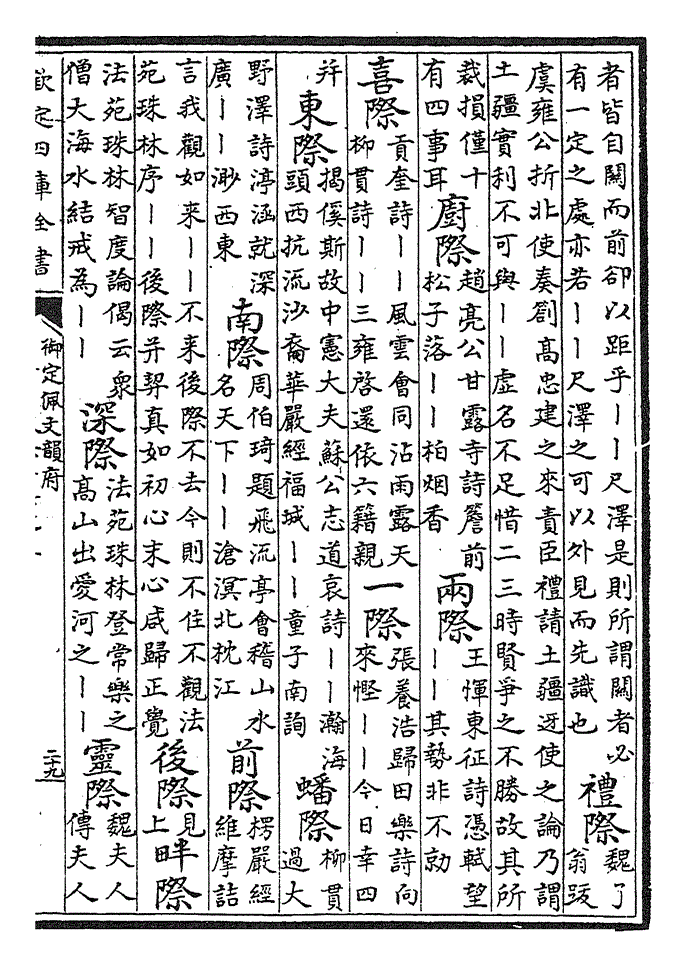 者皆自關而前卻以距乎丨丨尺澤是則所謂關者必
有一定之處亦若丨丨尺澤之可以外見而先識也
禮際
魏了
翁跋
虞雍公折北使奏劄高忠建之來責臣禮請土疆迓使之論乃謂
土疆實利不可與丨丨虛名不足惜二三時賢爭之不勝故其所
裁損僅十
有四事耳
廚際
趙亮公甘露寺詩簷前
松子落丨丨柏烟香
兩際
王惲東征詩憑軾望
丨丨其勢非不勍
喜際
貢奎詩丨丨風雲會同沾雨露天
柳貫詩丨丨三雍啓還依六籍親
一際
張養浩歸田樂詩向
來慳丨丨今日幸四
并
東際
揭傒斯故中憲大夫蘇公志道哀詩丨丨瀚海
頭西抗流沙裔華嚴經福城丨丨童子南詢
蟠際
柳貫
過大
野澤詩渟涵就深
廣丨丨渺西東
南際
周伯琦題飛流亭會稽山水
名天下丨丨滄溟北枕江
前際
楞嚴經
維摩詰
言我觀如来丨丨不来後際不去今則不住不觀法
苑珠林序丨丨後際并契真如初心末心咸歸正覺
後際
見
上
畔際
法苑珠林智度論偈云衆
僧大海水結戒為丨丨
深際
法苑珠林登常樂之
高山出愛河之丨丨
靈際
魏夫人
傳夫人
欽定四庫全書
御定佩文韻府
二十九